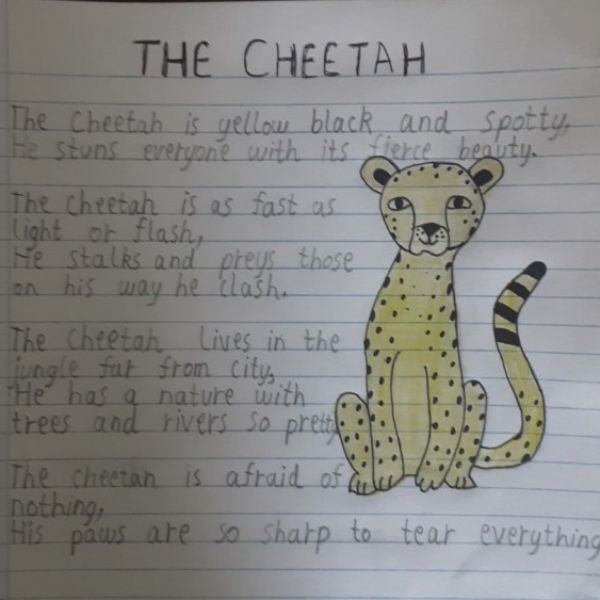 THE CHEETAH
The Cheetah is yellow black and spotty,
He stuns everyone with its fierce beauty.
The cheetah is as fast as
light or flash,
He stalks and preys those
on his way he clash.
The Cheetah lives in the
jungle far from city,
He has a nature with
trees and rivers so pretty
The cheetah is afraid of
nothing,
His paws are so sharp to tear everything